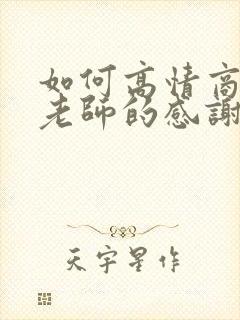 如何高情商
老師的感謝
天宇星作